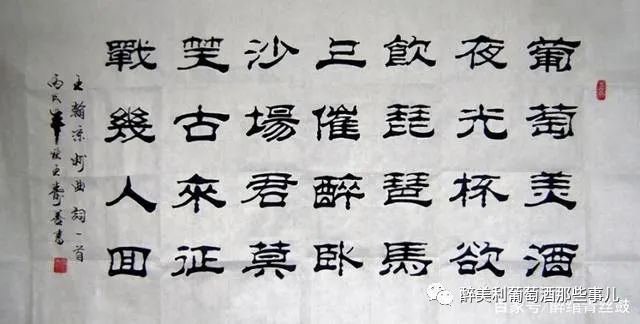 葡萄美酒
夜光杯欲
飲琵琶馬
上催醉卧
沙場君莫
笑古來征
戰幾人回
王翰凉州曲詞一首
書
醉美利葡萄酒那些事儿
百家号/醉绾青丝鼓